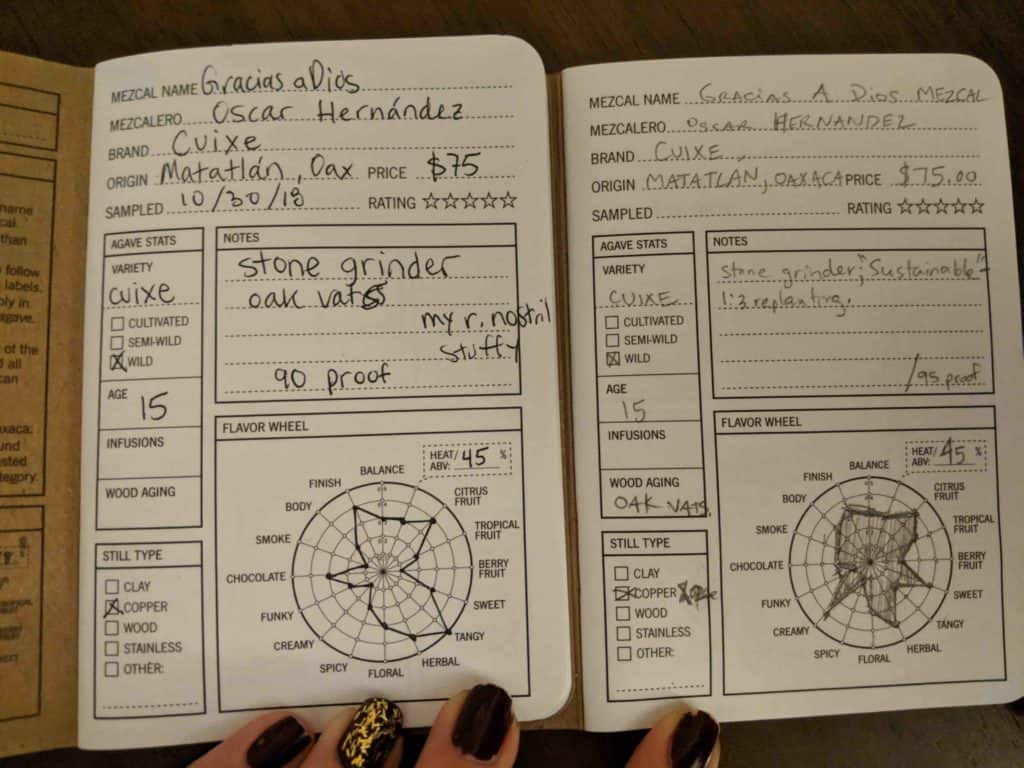 name
cal.
than
follow
labels.
bly in
agave.
t of the
d all
can
axaca;
und
ested
tegory.
MEZCAL NAME Gracias a Dios
MEZCALERO Oscar Hernández
BRAND Cuixe
ORIGIN Matatlán, Oax PRICE $75
SAMPLED 10/30/18 RATING
AGAVE STATS
VARIETY
cuixe
CULTIVATED
SEMI-WILD
WILD
AGE
15
INFUSIONS
WOOD AGING
STILL TYPE
CLAY
COPPER
WOOD
STAINLESS
OTHER:
NOTES
stone grinder
oak vats
my r. nostril
stuffy
90 proof
FLAVOR WHEEL
HEAT/
ABV: 45 %
BALANCE
CITRUS
FRUIT
TROPICAL
FRUIT
BERRY
FRUIT
SWEET
TANGY
HERBAL
FLORAL
SPICY
CREAMY
FUNKY
CHOCOLATE
SMOKE
BODY
FINISH
MEZCAL NAME GRACIAS A DIOS MEZCAL
MEZCALERO OSCAR HERNANDEZ
BRAND CUIXE
ORIGIN MATATLAN, OAXACA PRICE $75.00
SAMPLED RATING
AGAVE STATS
VARIETY
CUIXE
CULTIVATED
SEMI-WILD
WILD
AGE
15
INFUSIONS
WOOD AGING
OAK VATS.
STILL TYPE
CLAY
COPPER
WOOD
STAINLESS
OTHER:
NOTES
Stone grinder; "Sustainable" -
1:3 replanting.
/95 proof
FLAVOR WHEEL
HEAT/
ABV: 45 %
BALANCE
CITRUS
FRUIT
TROPICAL
FRUIT
BERRY
FRUIT
SWEET
TANGY
HERBAL
FLORAL
SPICY
CREAMY
FUNKY
CHOCOLATE
SMOKE
BODY
FINISH